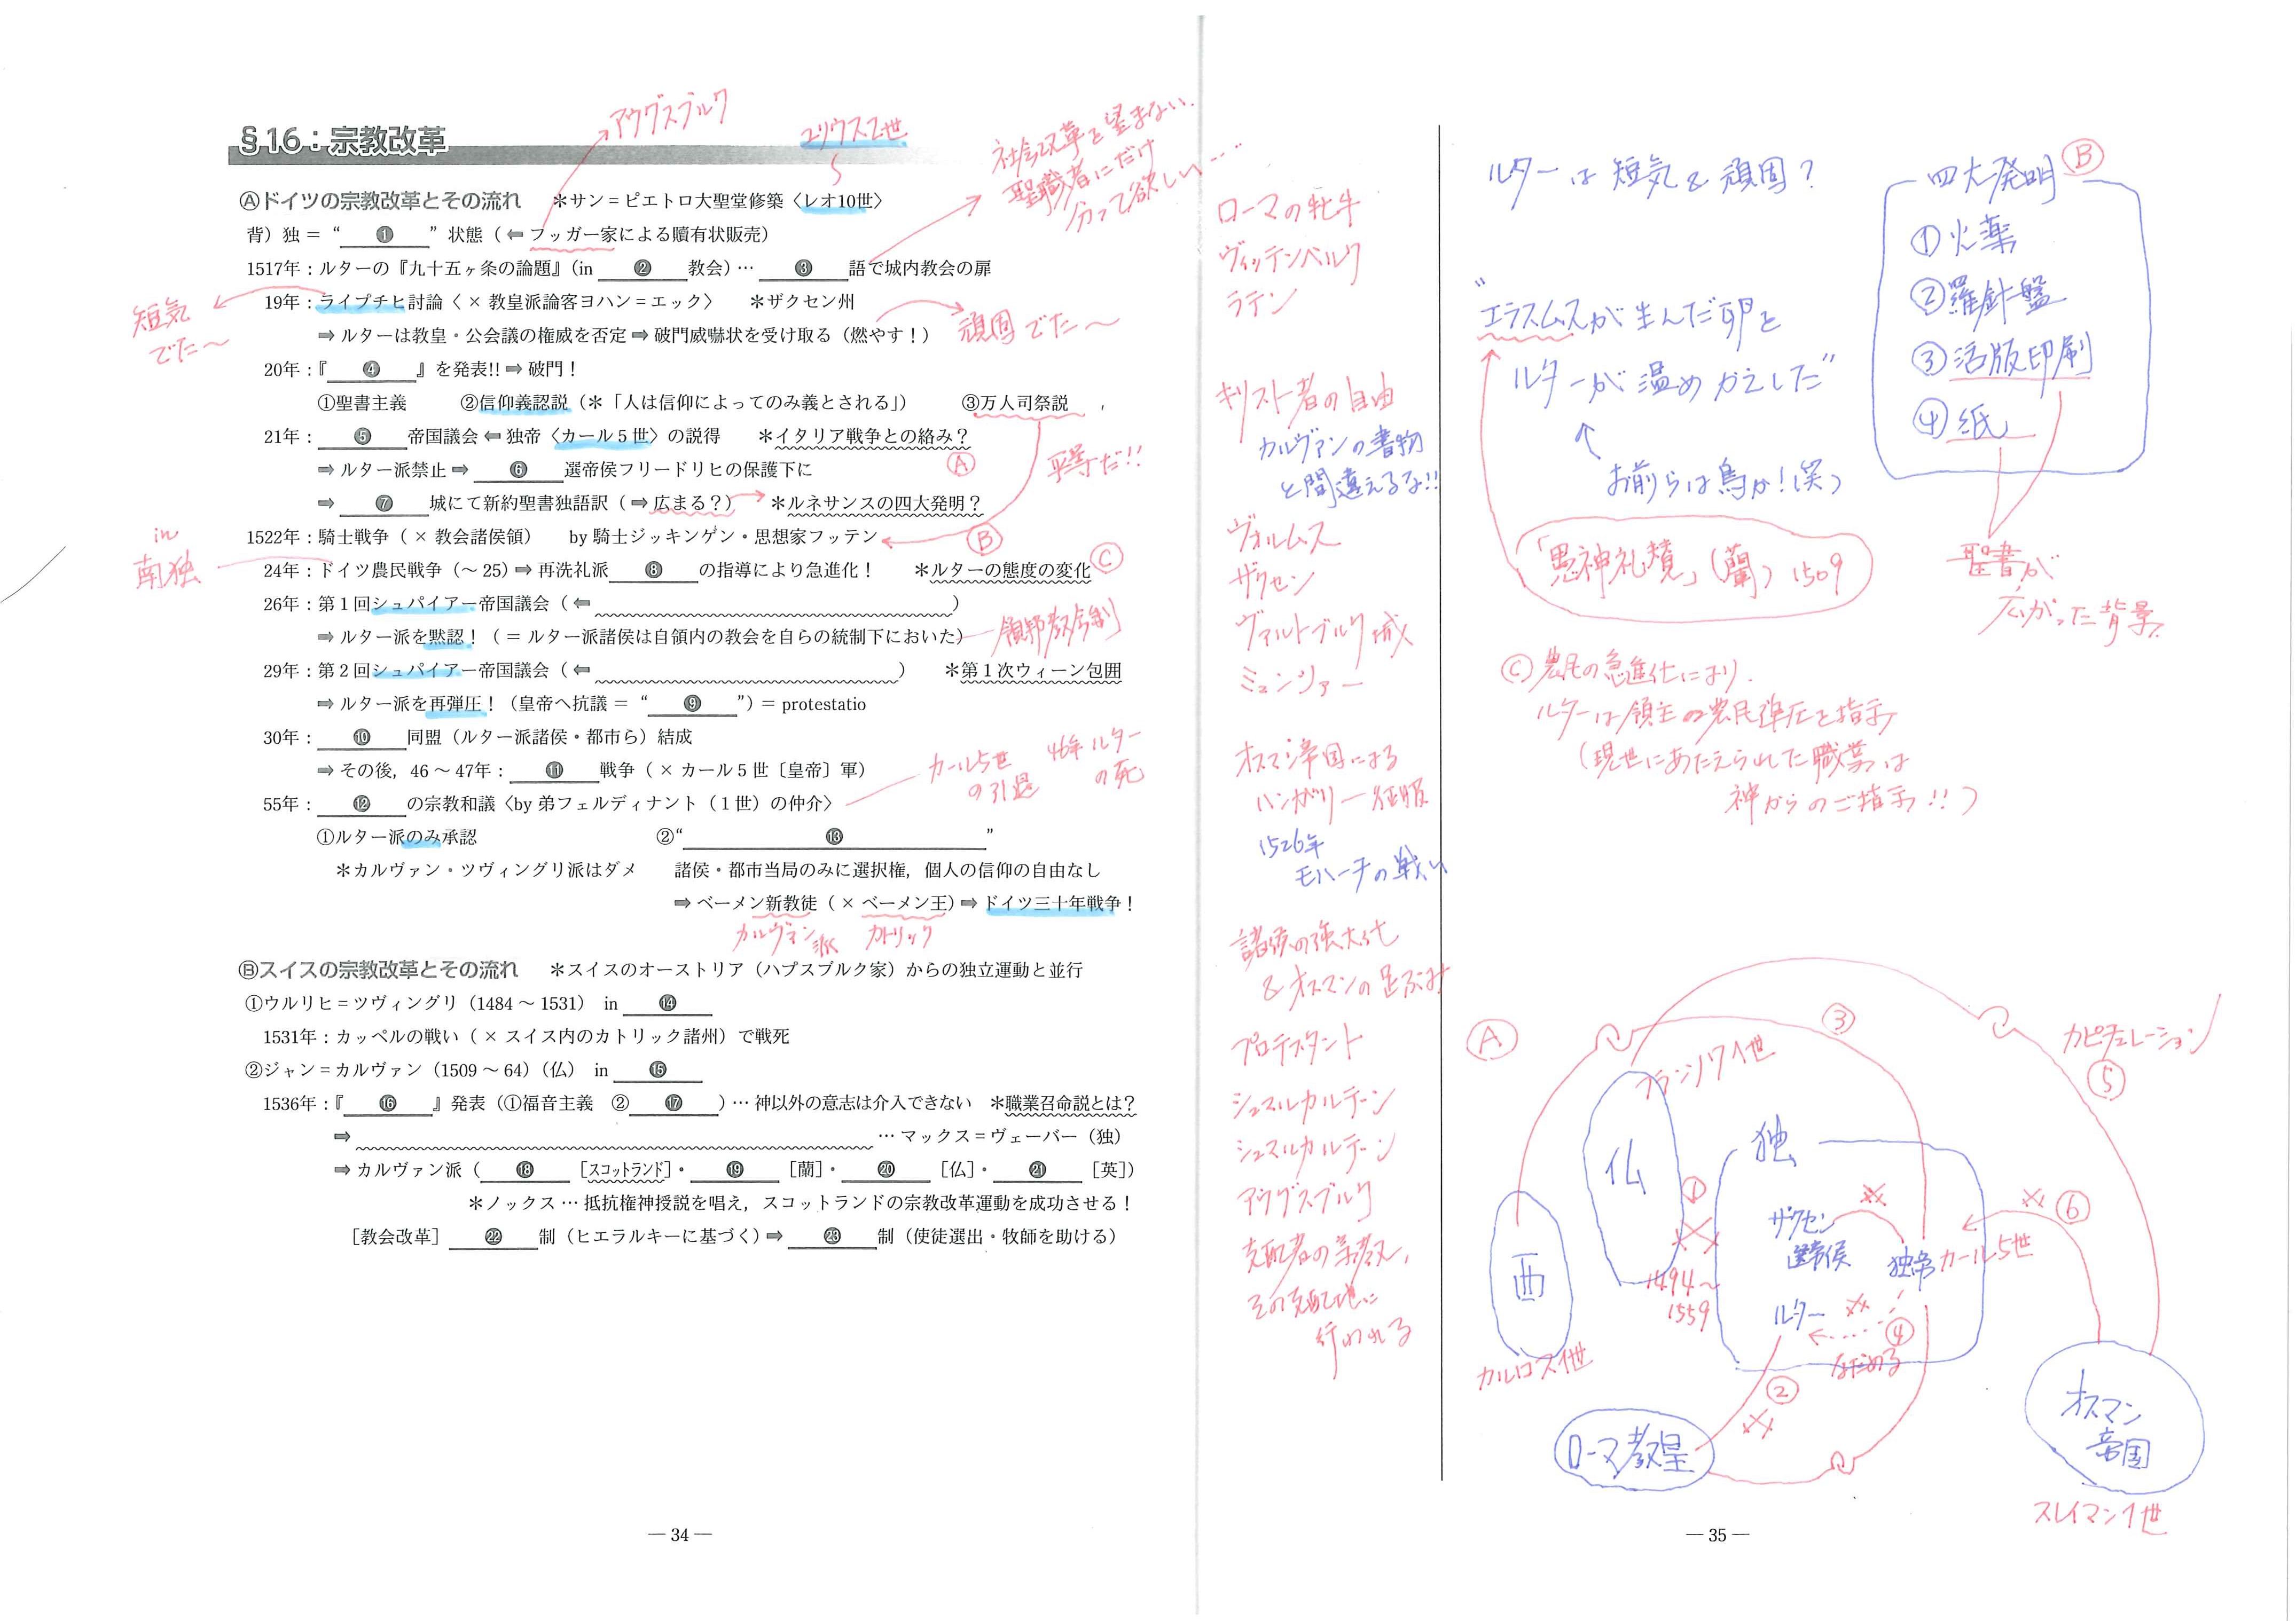 §16：宗教改革
アウグスブルク
ユリウス2世
社会改革を望まない.
聖職者にだけ
分って欲しい…
Ⓐドイツの宗教改革とその流れ　＊サン＝ピエトロ大聖堂修築〈レオ10世〉
背）独 ＝ “ ❶ ” 状態（⇐ フッガー家による贖宥状販売）
1517年：ルターの『九十五ヶ条の論題』（in ❷ 教会）… ❸ 語で城内教会の扉
19年：ライプチヒ討論〈 × 教皇派論客ヨハン＝エック〉　＊ザクセン州
短気
でた〜
⇒ ルターは教皇・公会議の権威を否定 ⇒ 破門威嚇状を受け取る（燃やす！）
頑固でた〜
20年：『 ❹ 』を発表!! ⇒ 破門！
①聖書主義　②信仰義認説（＊「人は信仰によってのみ義とされる」）　③万人司祭説
21年： ❺ 帝国議会 ⇐ 独帝〈カール５世〉の説得　＊イタリア戦争との絡み？
Ⓐ
平等だ!!
⇒ ルター派禁止 ⇒ ❻ 選帝侯フリードリヒの保護下に
⇒ ❼ 城にて新約聖書独語訳（⇒ 広まる？）　＊ルネサンスの四大発明？
Ⓑ
1522年：騎士戦争（ × 教会諸侯領）　by 騎士ジッキンゲン・思想家フッテン
in
南独
24年：ドイツ農民戦争（〜 25）⇒ 再洗礼派 ❽ の指導により急進化！　＊ルターの態度の変化
Ⓒ
26年：第１回シュパイアー帝国議会（⇐ ）
⇒ ルター派を黙認！（＝ ルター派諸侯は自領内の教会を自らの統制下においた）
領邦教会制
29年：第２回シュパイアー帝国議会（⇐ ）　＊第１次ウィーン包囲
⇒ ルター派を再弾圧！（皇帝へ抗議 ＝ “ ❾ ”）＝ protestatio
30年： ❿ 同盟（ルター派諸侯・都市ら）結成
⇒ その後，46 〜 47年： ⓫ 戦争（ × カール５世〔皇帝〕軍）
カール5世
の引退
46年 ルター
の死
55年： ⓬ の宗教和議〈by 弟フェルディナント（１世）の仲介〉
①ルター派のみ承認　②“ ⓭ ”
＊カルヴァン・ツヴィングリ派はダメ　諸侯・都市当局のみに選択権，個人の信仰の自由なし
⇒ ベーメン新教徒（ × ベーメン王）⇒ ドイツ三十年戦争！
カルヴァン派　カトリック
Ⓑスイスの宗教改革とその流れ　＊スイスのオーストリア（ハプスブルク家）からの独立運動と並行
①ウルリヒ＝ツヴィングリ（1484 〜 1531）　in ⓮
1531年：カッペルの戦い（ × スイス内のカトリック諸州）で戦死
②ジャン＝カルヴァン（1509 〜 64）（仏）　in ⓯
1536年：『 ⓰ 』発表（①福音主義　② ⓱ ）… 神以外の意志は介入できない　＊職業召命説とは？
⇒ … マックス＝ヴェーバー（独）
⇒ カルヴァン派（ ⓲ ［スコットランド］・ ⓳ ［蘭］・ ⓴ ［仏］・ ㉑ ［英］）
＊ノックス … 抵抗権神授説を唱え，スコットランドの宗教改革運動を成功させる！
［教会改革］ ㉒ 制（ヒエラルキーに基づく）⇒ ㉓ 制（使徒選出・牧師を助ける）
— 34 —
ローマの牝牛
ヴィッテンベルク
ラテン
キリスト者の自由
カルヴァンの書物
と間違えるな!!
ヴォルムス
ザクセン
ヴァルトブルク城
ミュンツァー
オスマン帝国による
ハンガリー征服
1526年
モハーチの戦い
諸侯の強大化
& オスマンの足ぶみ
プロテスタント
シュマルカルデン
シュマルカルデン
アウグスブルク
支配者の宗教,
その支配地に
行われる
ルターは短気&頑固？
“エラスムスが生んだ卵を
ルターが温めかえした”
お前らは鳥か!(笑)
「愚神礼賛」(蘭) 1509
四大発明 Ⓑ
①火薬
②羅針盤
③活版印刷
④紙
聖書が
広がった背景
Ⓒ 農民の急進化により.
ルターは領主の農民弾圧を指示
(現世にあたえられた職業は
神からのご指示!!)
Ⓐ
③
カピチュレーション
⑤
フランソワ1世
仏
独
①
1494〜
1559
ザクセン
選帝侯
独帝 カール5世
⑥
西
カルロス1世
ルター
④
なだめる
②
ローマ教皇
オスマン
帝国
スレイマン1世
— 35 —